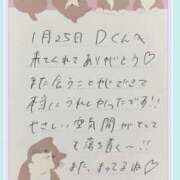 1月25日 Dくんへ
来てくれてありがとう♡
また会うことができて
本当にうれしかったです!!
やさしい空気間がとっても
落ち着く〜!!
また、まってるね♡